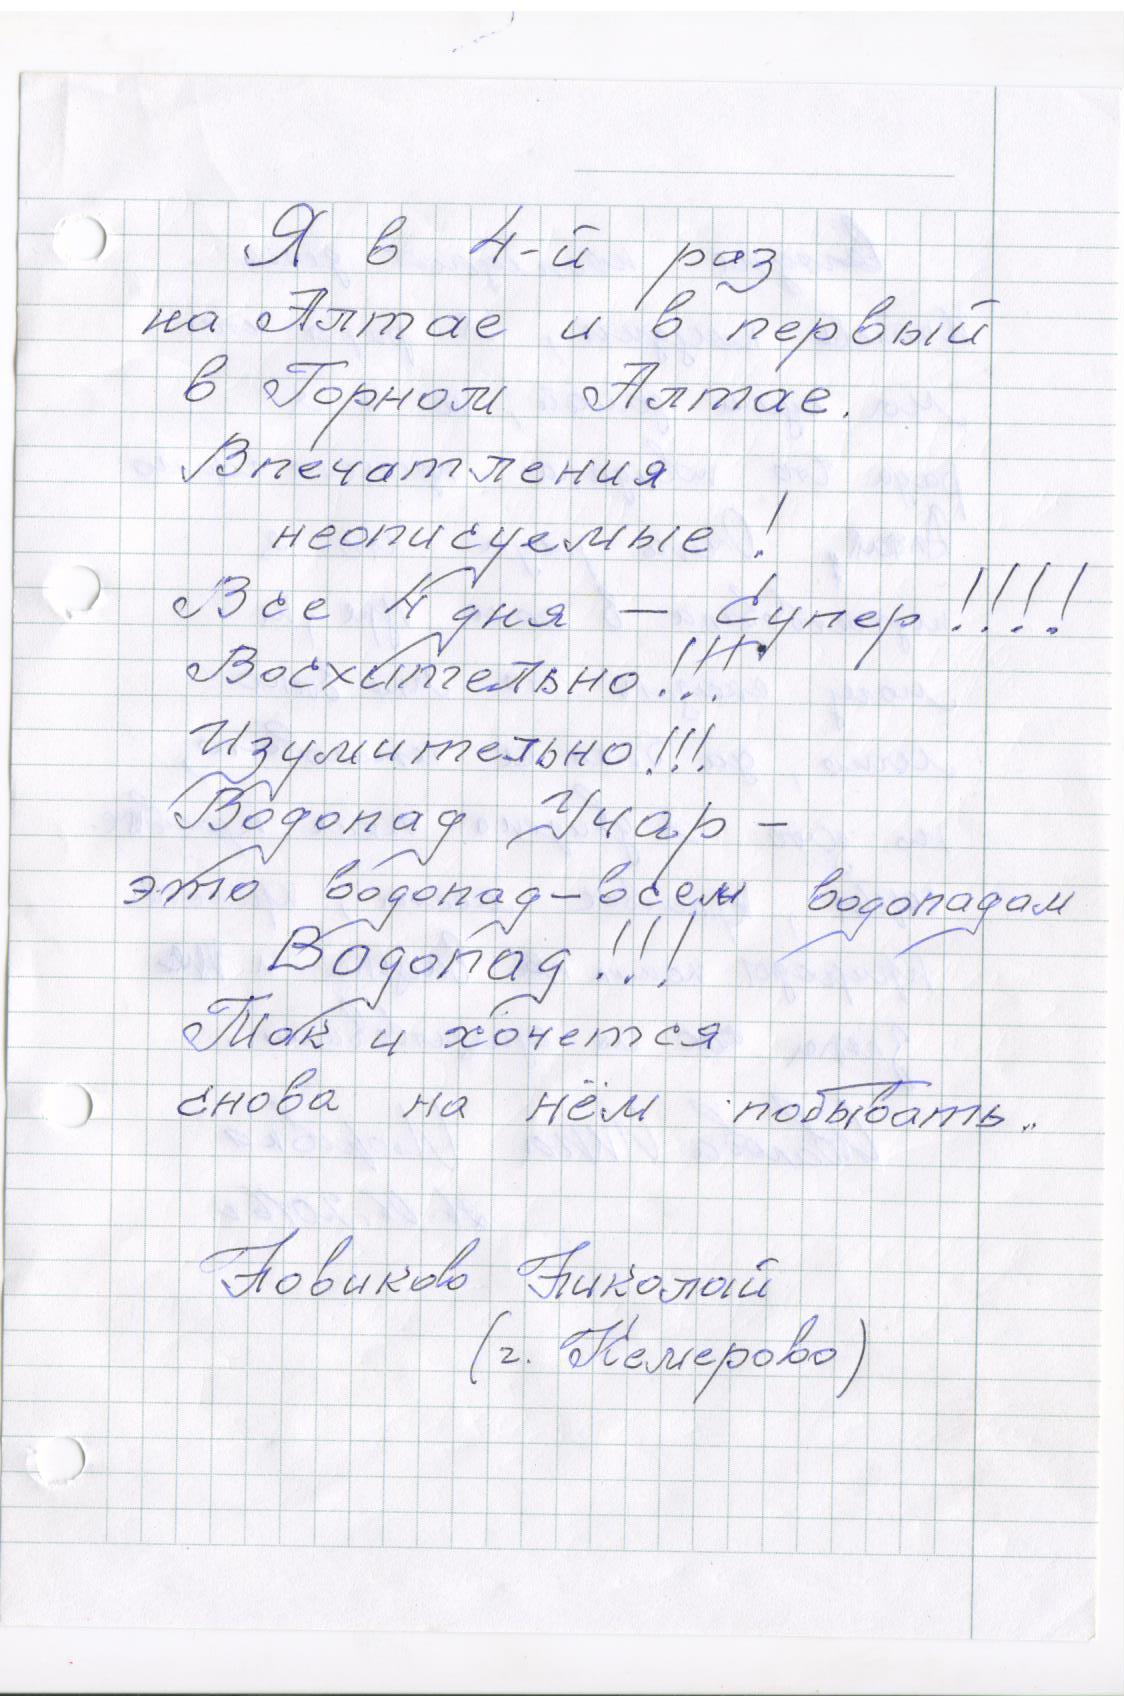 Я в 4-й раз
на Алтае и в первый
в Горном Алтае.
Впечатления
неописуемые!
Все 4 дня — Супер!!!!
Восхитительно!!!
Изумительно!!!
Водопад Учар –
это водопад – всем водопадам
Водопад!!!
Так и хочется
снова на нём побывать..
Новиков Николай
(г. Кемерово)